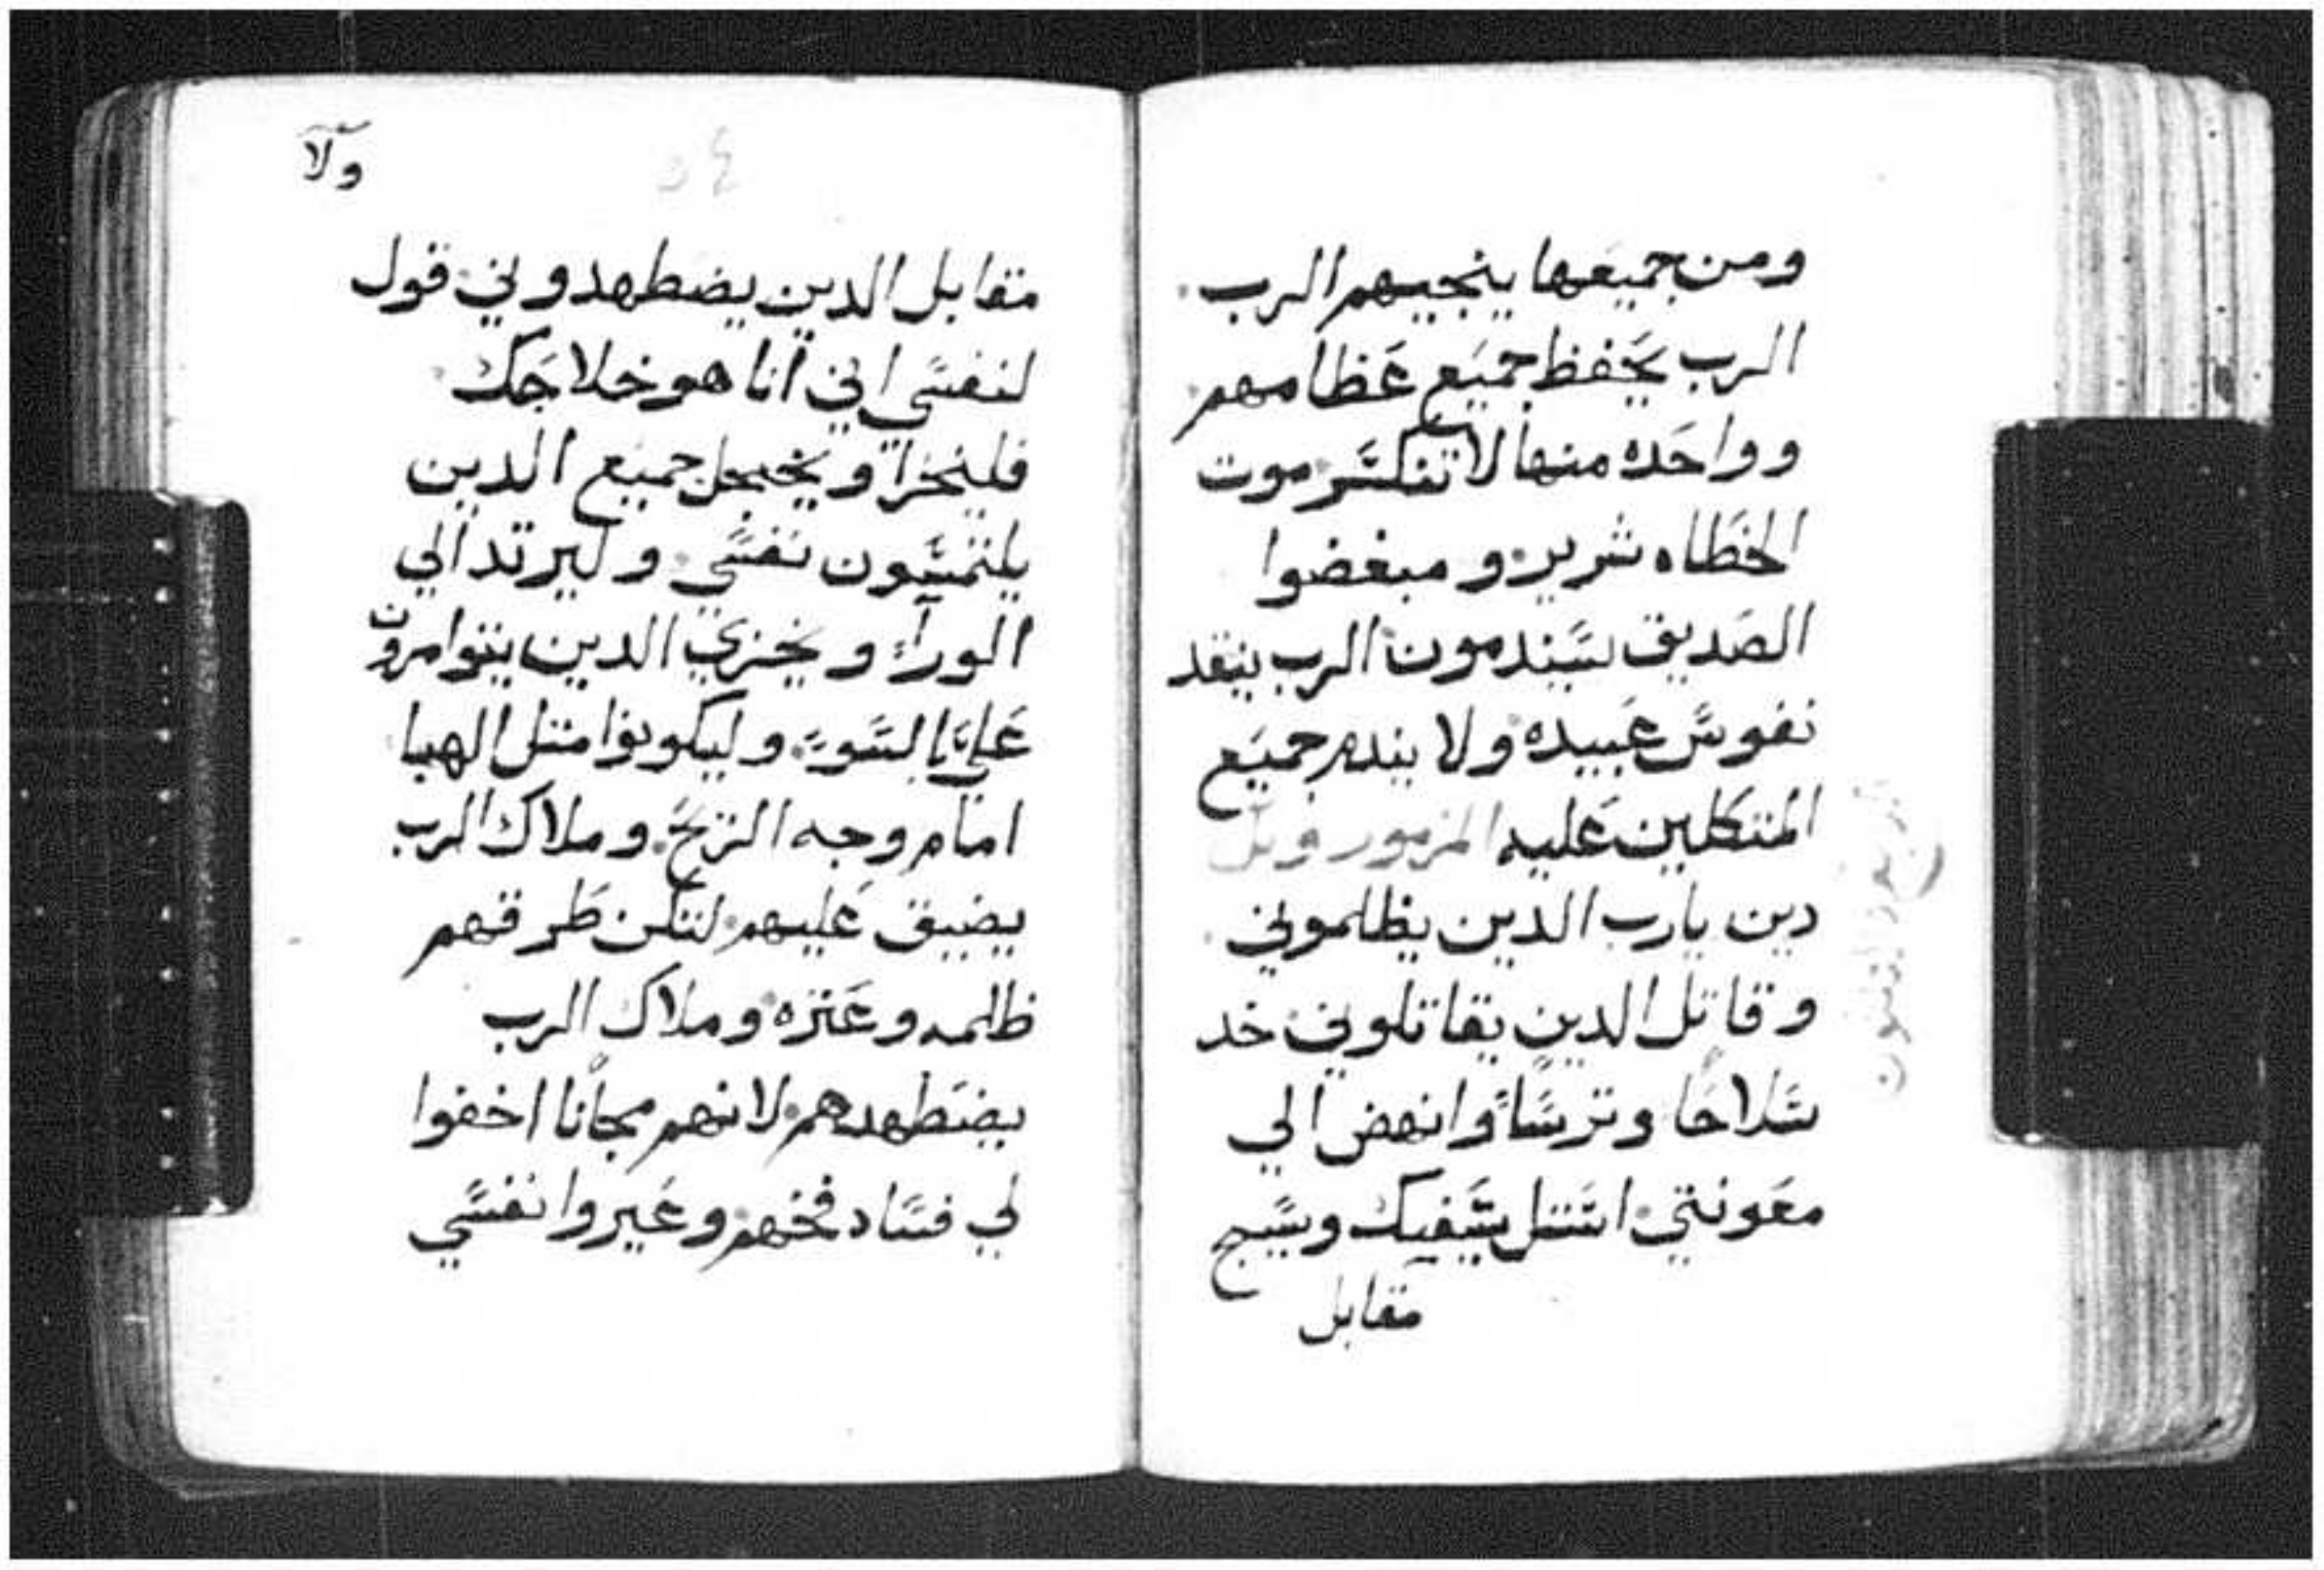 ومن جميعها ينجيهم الرب
الرب يحفظ جميع عظامهم
وواحده منها لا تنكسر موت
الخطاه شرير ومبغضوا
الصديق سيندمون الرب ينقد
نفوس عبيده ولا يندم جميع
المتكلين عليه المزمور
دين يارب الدين يظلموني
وقاتل الدين يقاتلوني خد
سلاحًا وترسًا وانهض الي
معونتي استل سيفك وسيج
مقابل
ولا
مقابل الدين يضطهدوني قول
لنفسي اني انا هو خلاجك
فليخزا ويخجل جميع الدين
يلتمسون نفسي وليرتد الي
الوراء ويخزي الدين يتوامرون
علي بالسوء وليكونوا متل الهبا
امام وجه الريح وملاك الرب
يضيق عليهم لتكن طرقهم
ظلمه وعتره وملاك الرب
يضطهدهم لانهم مجانًا اخفوا
لي فساد فخهم وعيروا نفسي